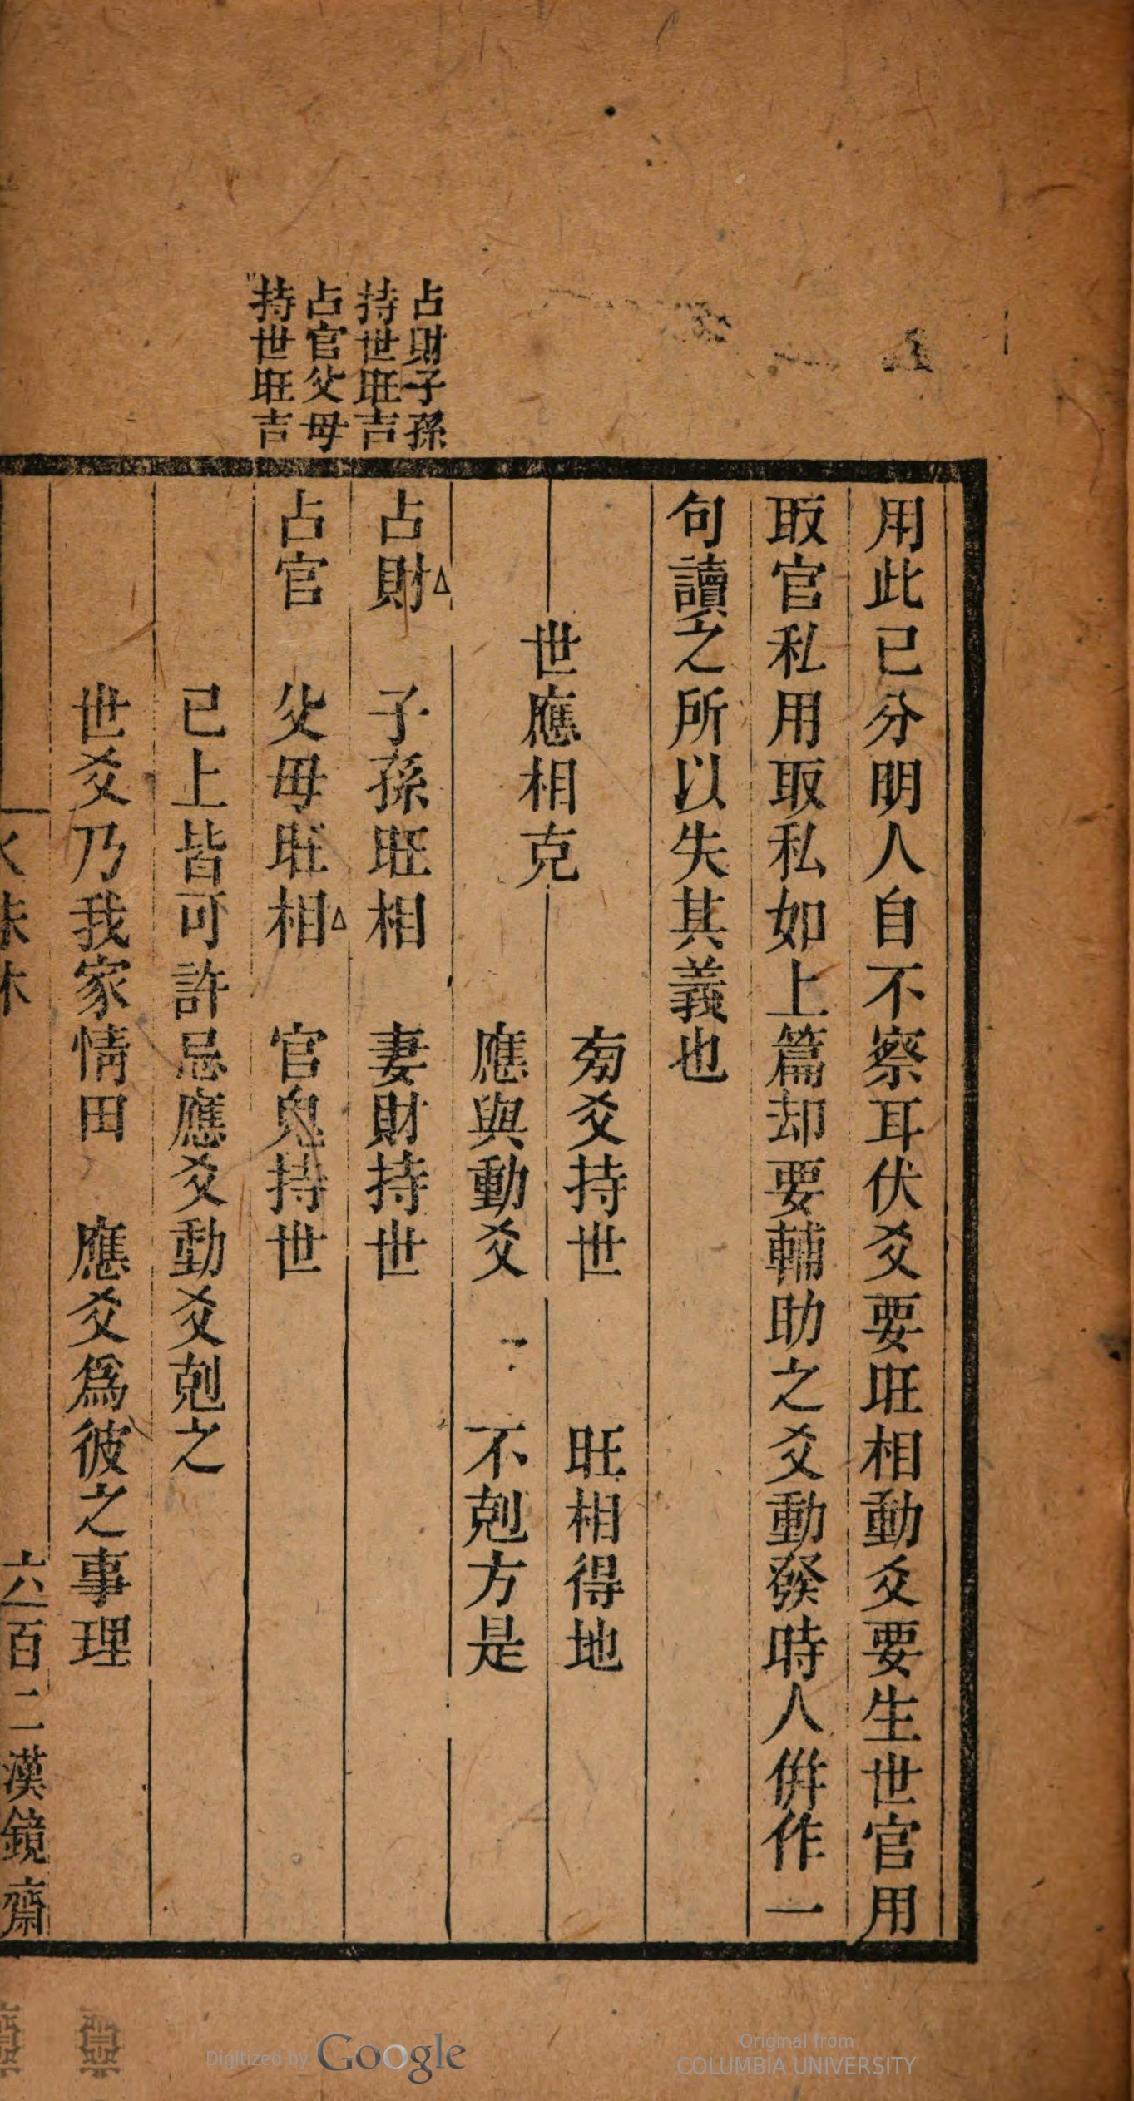 占財子孫
持世旺吉
占官父母
持世旺吉
用此已分明人自不察耳伏爻要旺相動爻要生世官用
取官私用取私如上篇却要輔助之爻動發時人併作一
句讀之所以失其義也
世應相克
旁爻持世 旺相得地
應與動爻 不剋方是
占財 子孫旺相 妻財持世
占官 父母旺相 官鬼持世
已上皆可許忌應爻動爻剋之
世爻乃我家情田 應爻爲彼之事理
六百二漢鏡齋
Digitized by Google
Original from
COLUMBIA UNIVERSITY